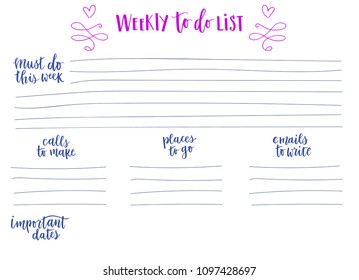 WEEKLY to do LIST
must do
this week
calls
to make
places
to go
emails
to write
important
dates
www.shutterstock.com · 1097428697